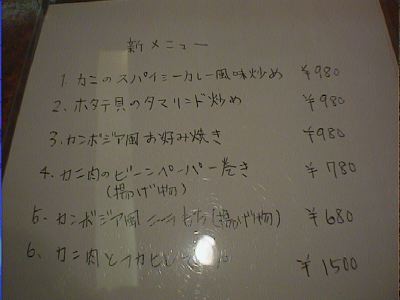 新メニュー
1. カニのスパイシーカレー風味炒め ￥980
2. ホタテ貝のタマリンド炒め ￥980
3. カンボジア風お好み焼き ￥980
4. カニ肉のビーンペーパー巻き ￥780
(揚げ物)
5. カンボジア風 もち(揚げ物) ￥680
6. カニ肉とフカヒレ ￥1500